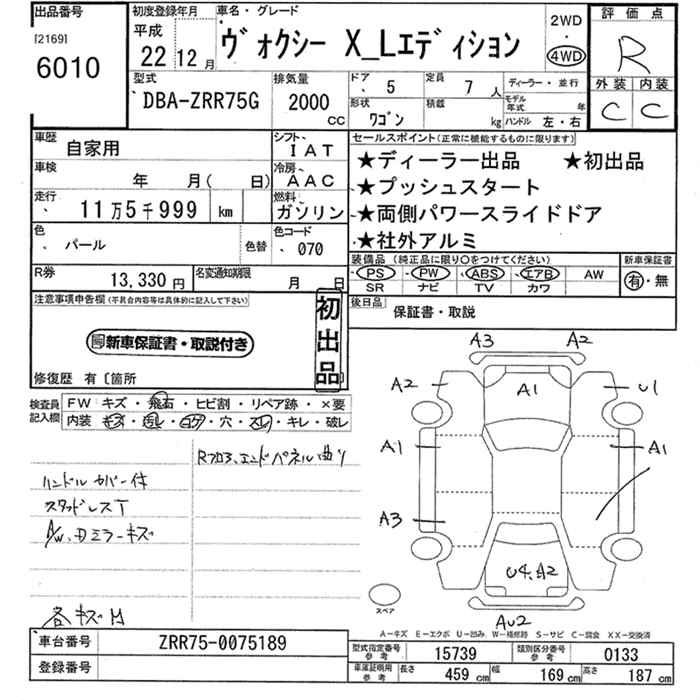 出品番号
[2169]
6010
初度登録年月
平成
22 12月
車名・グレード
ヴォクシー X_Lエディション
2WD
・
4WD
評価点
R
外装 内装
C C
型式
DBA-ZRR75G
排気量
2000
CC
ドア 5
定員 7 人
形状 ワゴン
積載 kg
ディーラー・並行
モデル年式 年
ハンドル 左・右
車歴 自家用
シフト IAT
車検 年 月( 日)
冷房 AAC
走行 11万5千999 km
燃料 ガソリン
色 パール
色替
色コード 070
R券 13,330円
名変通知期限 月 日
セールスポイント(正常に機能するものに限ります)
★ディーラー出品 ★初出品
★プッシュスタート
★両側パワースライドドア
★社外アルミ
装備品(純正品に限り○をつけてください)
新車保証書
PS PW ABS エアB AW
有・無
SR ナビ TV カワ
後日品
保証書・取説
注意事項申告欄(不具合内容等は具体的に記入して下さい)
新車保証書・取説付き
初出品
修復歴 有〔箇所
検査員記入欄
FW キズ・飛石・ヒビ割・リペア跡・×要
内装 キズ・汚レ・コゲ・穴・スレ・キレ・破レ
Rフロア、エンドパネル曲り
ハンドルカバー付
スタッドレスT
A/W、ドミラーキズ
各キズ凹
A3 A2
A2 A1 U1
A1 A1
A3
U4.A2
AU2
スペア
A-キズ E-エクボ U-凹み W-補修跡 S-サビ C-腐食 XX-交換済
車台番号 ZRR75-0075189
登録番号
型式指定番号 参考 15739
類別区分番号 参考 0133
車庫証明用 参考 長さ 459 cm 幅 169 cm 高さ 187 cm